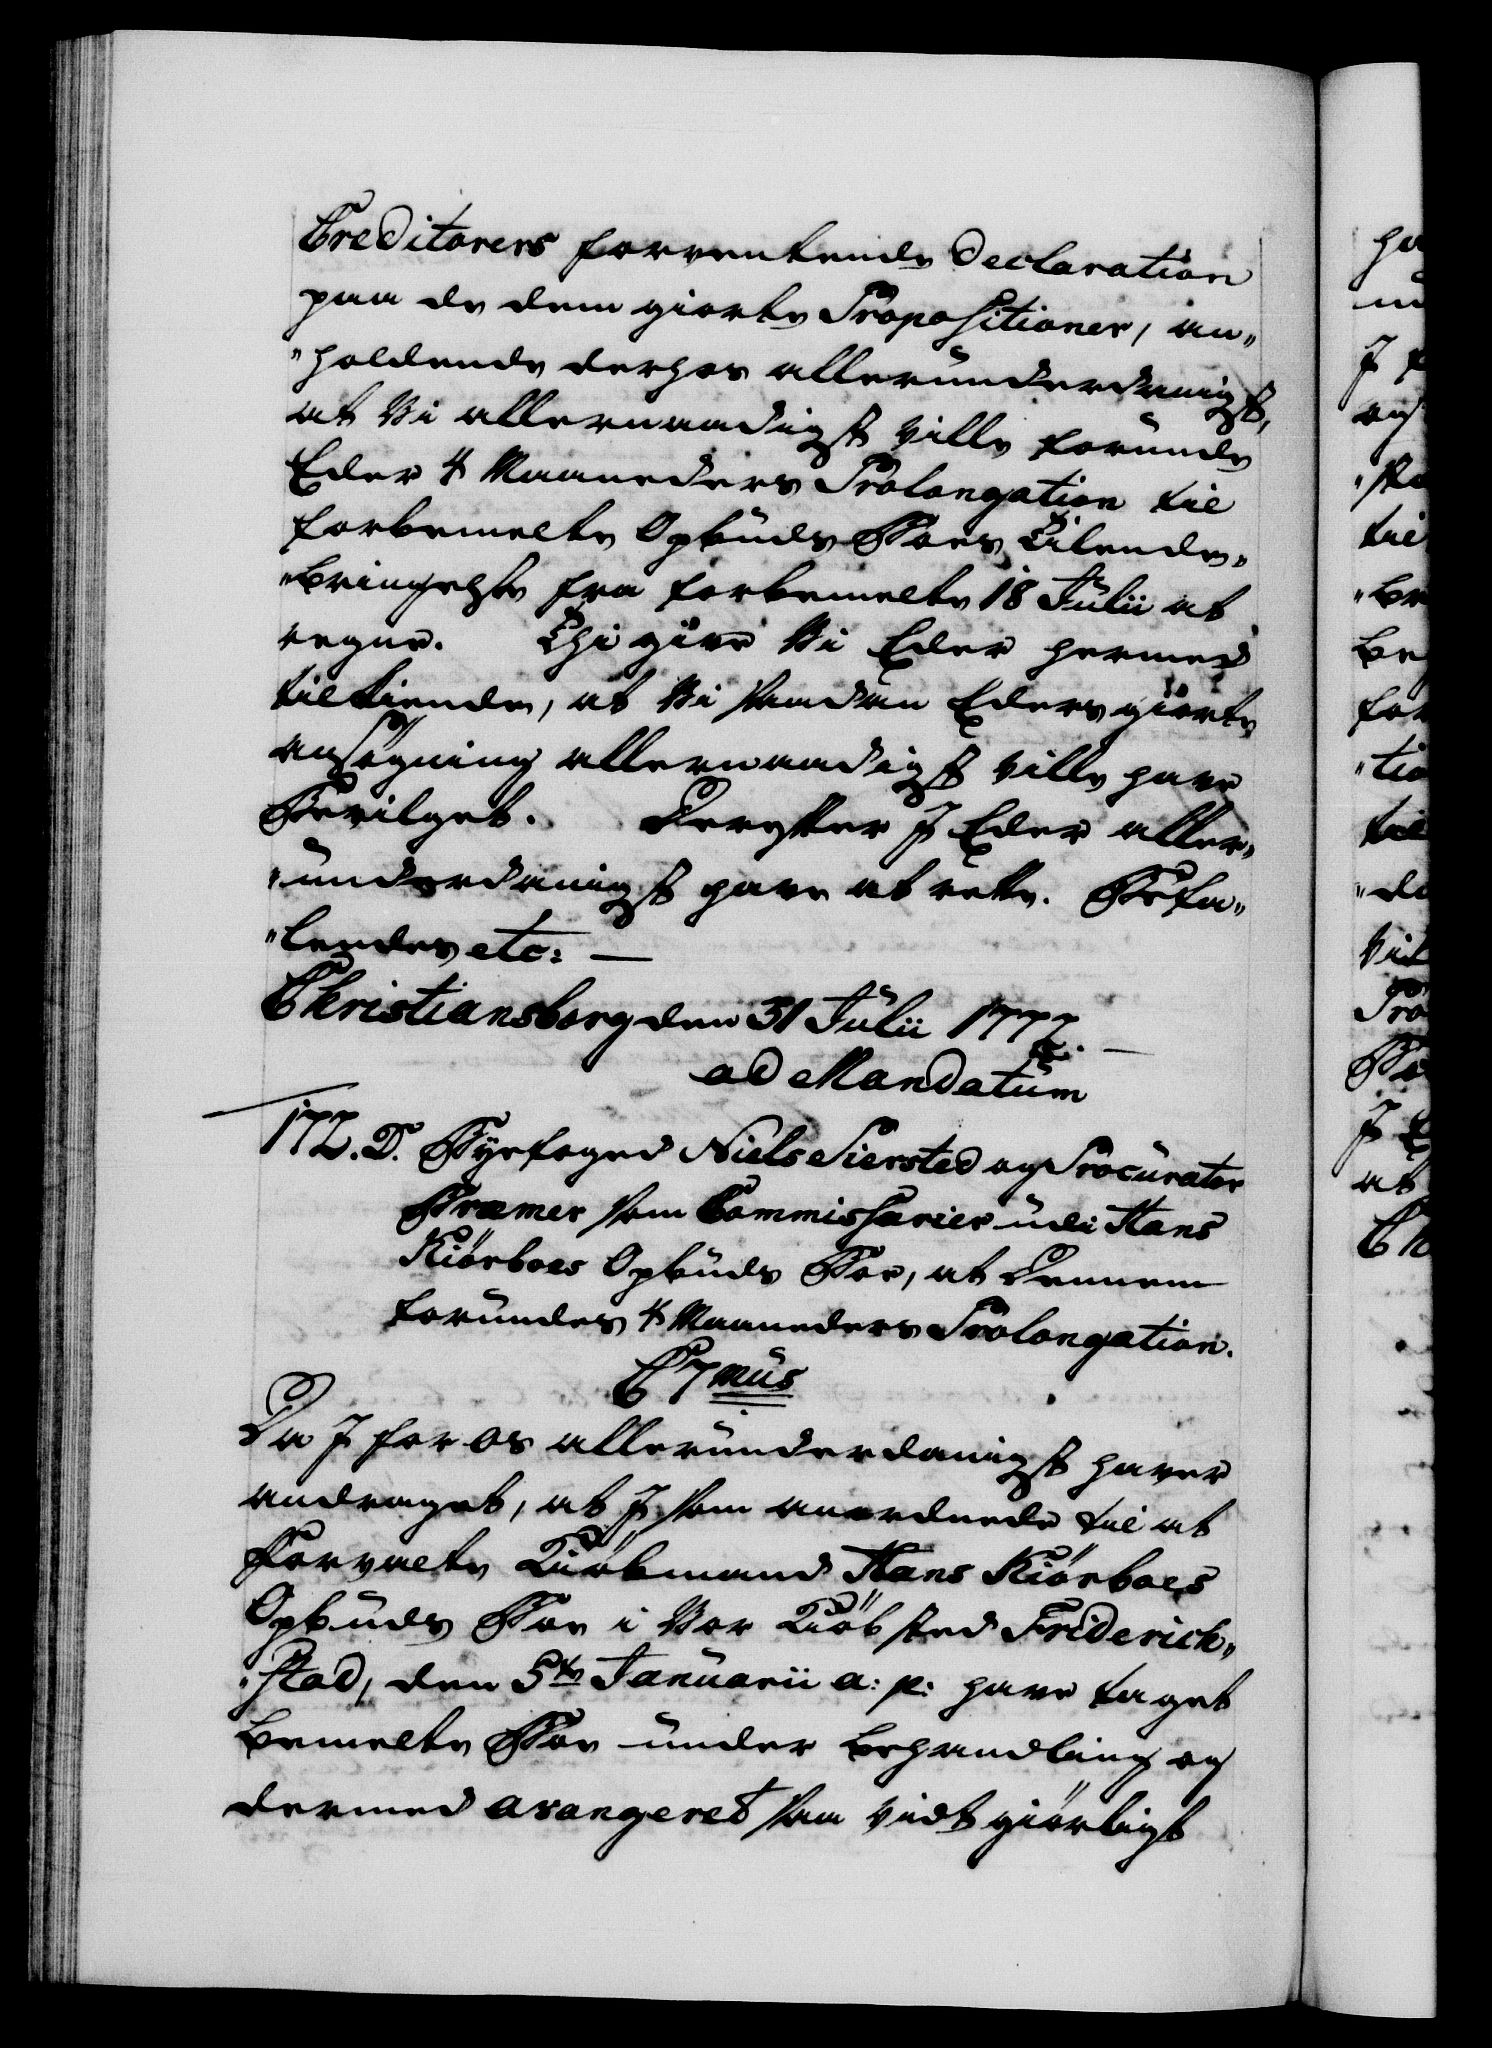 Creditorers forventende Declaration
paa de dem giorte Propositioner, an-
"holdende derhos allerunderdanigst,
at Vi allernaadigst ville forunde
Eder 4 Maaneders Prolongation til
forbemelte Opbuds Boes Tilende-
"bringelse fra forbemelte 18 Julii at
regne. Thi give Vi Eder hermed
tilkiende, at Vi saadan Eders giorte
ansøgning allernaadigst ville have
Bevilget. Derefter I Eder aller-
"underdanigst have at rette. Befa-
"lendes etc: —
Christiansborg den 31 Julii 1777. —
ad Mandatum
172. D. Byefoged Niels Siersted og Procurator
Bræmer som Commissarier udi Hans
Kiörboes Opbuds Boe, at Dennem
forundes 4 Maaneders Prolongation.
C7mus
Da I for os allerunderdanigst haver
andraget, at I som anordnede til at
forvalte Kiöbmand Hans Kiörboes
Opbuds Boe i Vor Kiöbsted Friderich-
"stad, den 5te Januarii a: p: have taget
bemelte Boe under behandling og
dermed arangeret saa vidt giørligt